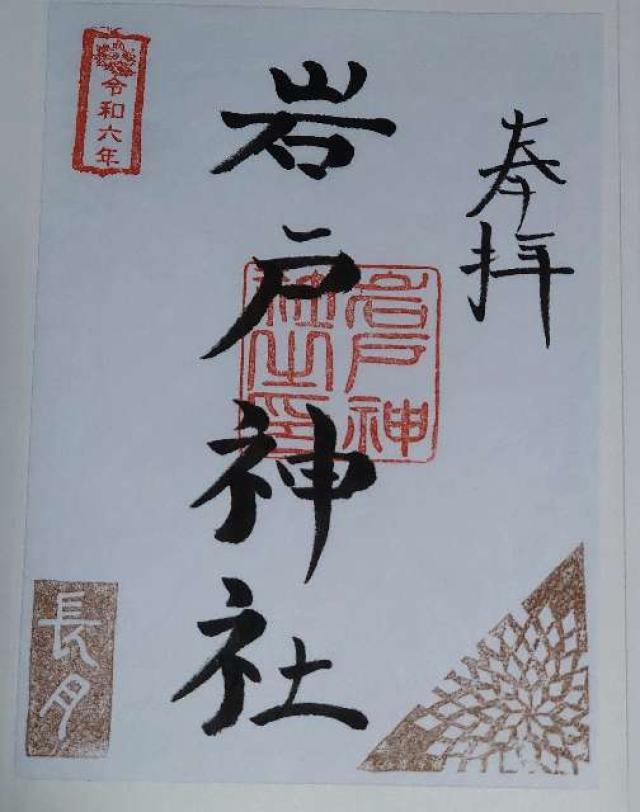 奉拝
岩戸神社
岩戸神
社之印
令和六年
長月